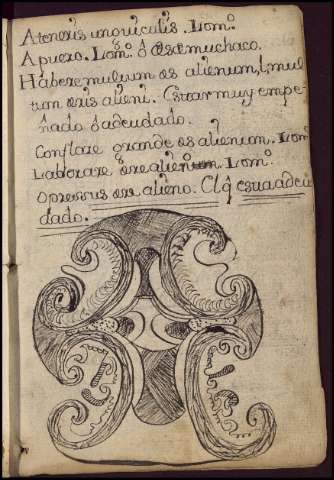 A teneris unguiculis. Lomº.
A puero. Lomº. d̃ desde muchaco.
Habere multum æs alienum, l, mul
tum æris alieni. Estar muy empe
ñado o adeudado.
Conflare grande æs alienum. Lomº
Laborare ære alienum. Lomº.
Opressus ære alieno. El q̃ esta adeu
dado.